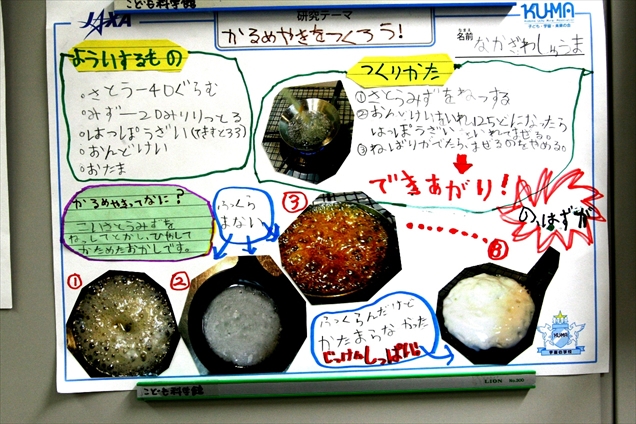 こども科学館
JAXA
研究テーマ
かるめやきをつくろう!
KUMA
子ども・宇宙・未来の会
名前
なまえ
なかざわしゅうま
よういするもの
○さとうー40ぐらむ
○みずー20みりりっとる
○はっぽうざい(てきすと33)
○おんどけい
○おたま
つくりかた
①さとうみずをねっする
②おんどけいをいれ125どになったら
はっぽうざいをいれてまぜる。
③ねばりがでたら、まぜるのをやめる。
できあがり!
の、はずが
かるめやきってなに?
こいさとうみずを
ねっしてとかし、ひやして
かためたおかしです。
ふっくら
まない
①
②
③
⑧
ふっくらんだけど
かたまらなかった
じっけんしっぱい
KUMA
宇宙の学校
こども科学館
LION No.300